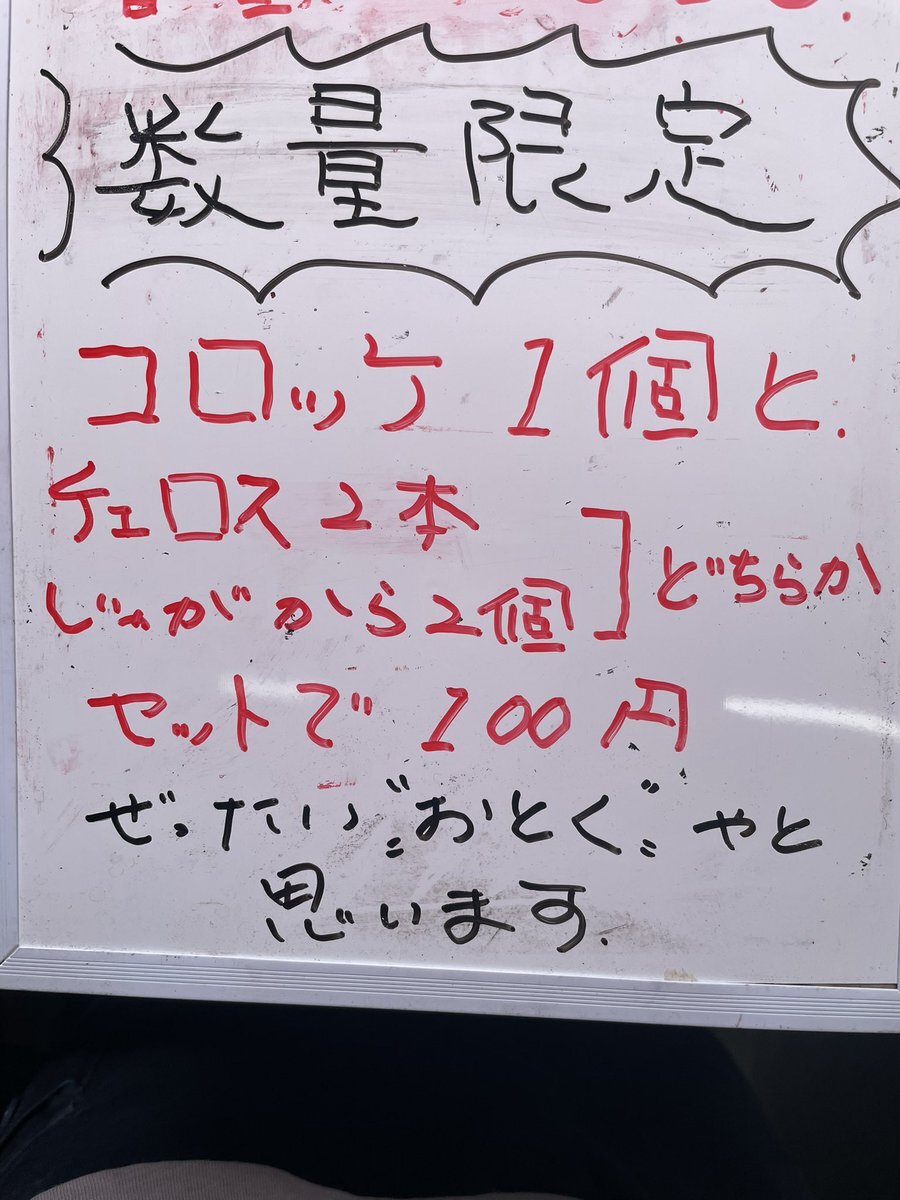 数量限定
コロッケ1個と.
チェロス2本
じゃがから2個
どちらか
セットで100円
ぜったい"おとく"やと
思います.